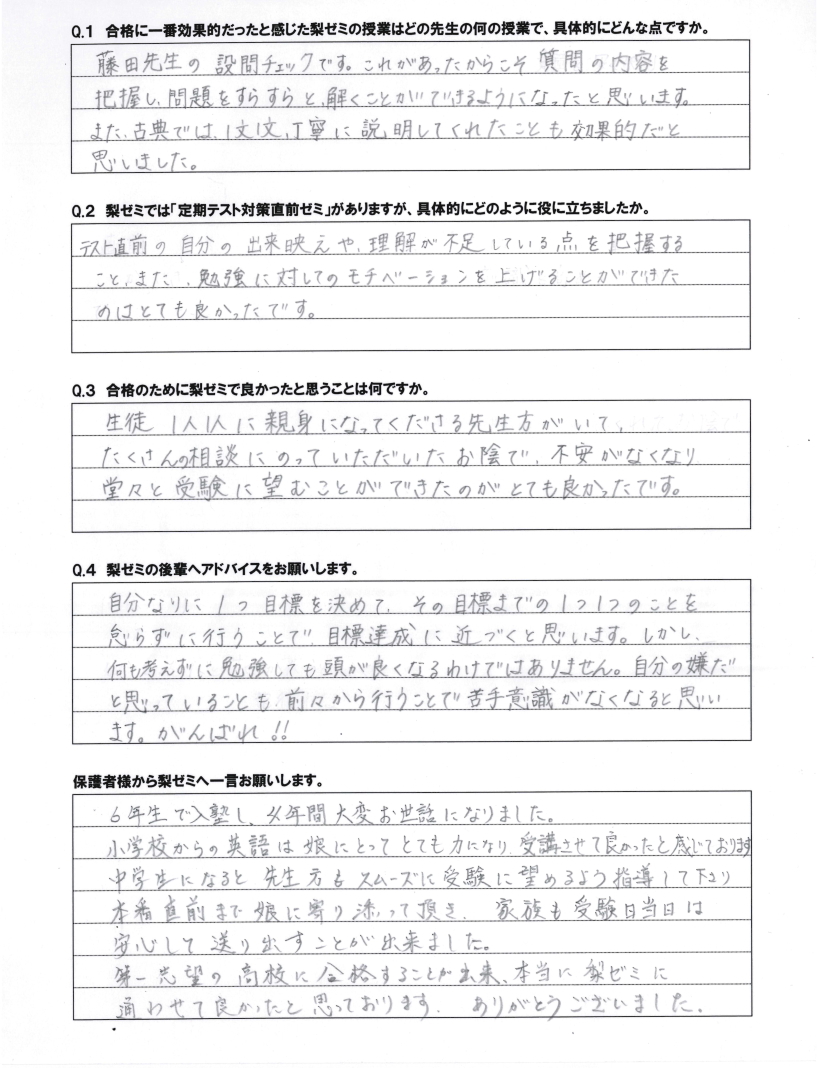 Q.1 合格に一番効果的だったと感じた梨ゼミの授業はどの先生の何の授業で、具体的にどんな点ですか。
藤田先生の設問チェックです。これがあったからこそ質問の内容を
把握し、問題をすらすらと、解くことができるようになったと思います。
また、古典では、1文1文、丁寧に説明してくれたことも効果的だと
思いました。
Q.2 梨ゼミでは「定期テスト対策直前ゼミ」がありますが、具体的にどのように役に立ちましたか。
テスト直前の自分の出来映えや、理解が不足している点を把握する
こと、また、勉強に対してのモチベーションを上げることができた
のはとても良かったです。
Q.3 合格のために梨ゼミで良かったと思うことは何ですか。
生徒1人1人に親身になってくださる先生方がいて、
たくさんの相談にのっていただいたお陰で、不安がなくなり
堂々と受験に望むことができたのがとても良かったです。
Q.4 梨ゼミの後輩へアドバイスをお願いします。
自分なりに1つ目標を決めて、その目標までの1つ1つのことを
怠らずに行うことで、目標達成に近づくと思います。しかし、
何も考えずに勉強しても頭が良くなるわけではありません。自分の嫌だ
と思っていることも、前々から行うことで苦手意識がなくなると思い
ます。がんばれ!!
保護者様から梨ゼミへ一言お願いします。
6年生で入塾し、4年間大変お世話になりました。
小学校からの英語は娘にとってとても力になり、受講させて良かったと感じております
中学生になると先生方もスムーズに受験に望めるよう指導して下さり
本番直前まで娘に寄り添って頂き、家族も受験日当日は
安心して送り出すことが出来ました。
第一志望の高校に合格することが出来、本当に梨ゼミに
通わせて良かったと思っております。ありがとうございました。